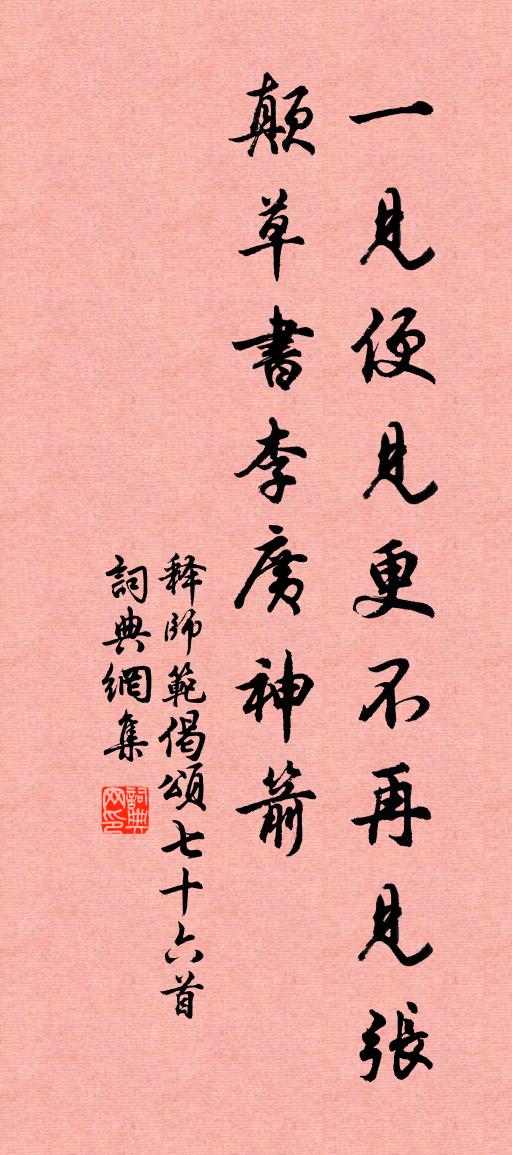 一見便見更不再見張
顛草書李廣神箭
释師範偈頌七十六首
詞典網集
詞典
网印